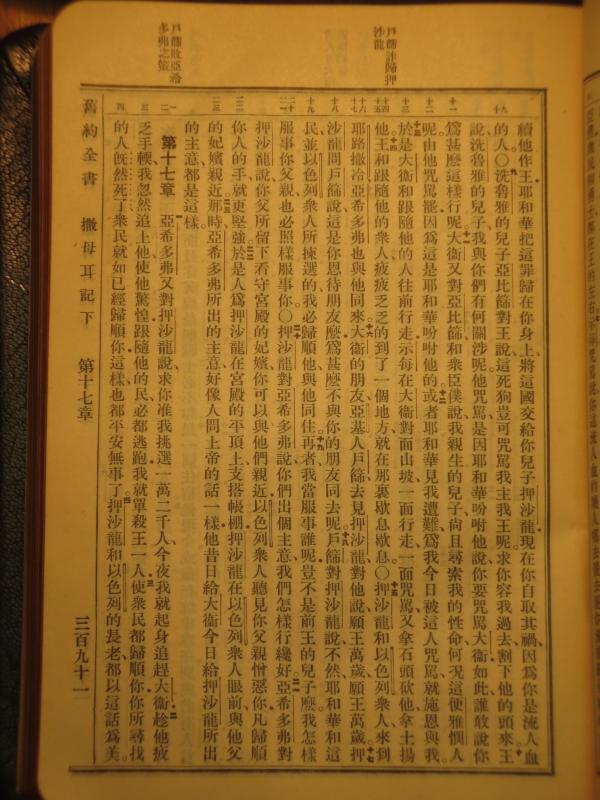 戶篩詐歸押
沙龍
戶篩敗亞希
多弗之策
續他作王耶和華把這罪歸在你身上將這國交給你兒子押沙龍現在你自取其禍因爲你是流人血
的人○洗魯雅的兒子亞比篩對王說這死狗豈可咒罵我主我王呢求你容我過去割下他的頭來王
說洗魯雅的兒子我與你們有何關涉呢他咒罵是因耶和華吩咐他說你要咒罵大衞如此誰敢說你
爲甚麽這樣行呢大衞又對亞比篩和衆臣僕說我親生的兒子尙且尋索我的性命何況這便雅憫人
呢由他咒罵罷因爲這是耶和華吩咐他的或者耶和華見我遭難爲我今日被這人咒罵就施恩與我
於是大衞和跟隨他的人往前行走示每在大衞對面山坡一面行走一面咒罵又拿石頭砍他拿土揚
他王和跟隨他的衆人疲疲乏乏的到了一個地方就在那裏歇息歇息○押沙龍和以色列衆人來到
耶路撒冷亞希多弗也與他同來大衞的朋友亞基人戶篩去見押沙龍對他說願王萬歲願王萬歲押
沙龍問戶篩說這是你恩待朋友麽爲甚麽不與你的朋友同去呢戶篩對押沙龍說不然耶和華和這
民並以色列衆人所揀選的我必歸順他與他同住再者我當服事誰呢豈不是前王的兒子麽我怎樣
服事你父親也必照樣服事你○押沙龍對亞希多弗說你們出個主意我們怎樣行纔好亞希多弗對
押沙龍說你父所留下看守宮殿的妃嬪你可以與他們親近以色列衆人聽見你父親憎惡你凡歸順
你人的手就更堅強於是人爲押沙龍在宮殿的平頂上支搭帳棚押沙龍在以色列衆人眼前與他父
的妃嬪親近那時亞希多弗所出的主意好像人問上帝的話一樣他昔日給大衞今日給押沙龍所出
的主意都是這樣
第十七章 亞希多弗又對押沙龍說求你准我挑選一萬二千人今夜我就起身追趕大衞趁他疲
乏手輭我忽然追上他使他驚惶跟隨他的民必都逃跑我就單殺王一人使衆民都歸順你你所尋找
的人旣然死了衆民就如已經歸順你這樣也都平安無事了押沙龍和以色列的長老都以這話爲美
舊約全書 撒母耳記下 第十七章 三百九十一